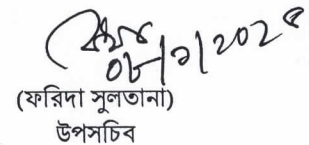 ০৮/১/২০২৫
(ফরিদা সুলতানা)
উপসচিব